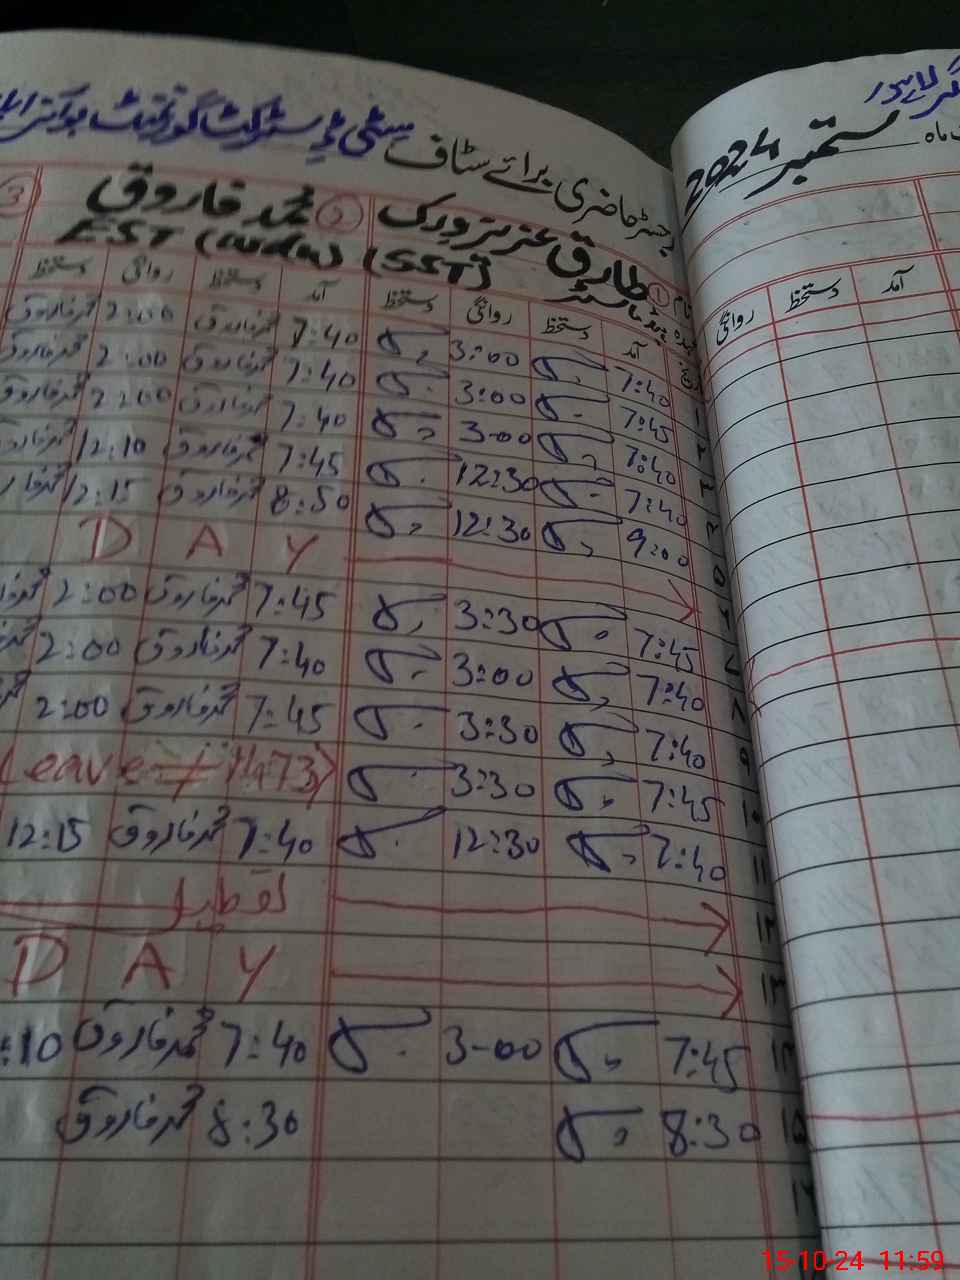 رجسٹر حاضری برائے سٹاف سٹی ڈسٹرکٹ گورنمنٹ بوائز
لاہور
ماہ ستمبر 2024
نام ① طارق عزیز ورک ② محمد فاروق ③
ہیڈ ماسٹر (SST) EST
آمد دستخط روانگی دستخط آمد دستخط روانگی دستخط
آمد دستخط روانگی
۱ 7:40 3:00 7:40 محمد فاروق 2:00 محمد فاروق
۲ 7:45 3:00 7:40 محمد فاروق 2:00 محمد فاروق
۳ 7:40 3-00 7:40 محمد فاروق 2:00 محمد فاروق
۴ 7:40 12:30 7:45 محمد فاروق 12:10
۵ 9:00 12:30 8:50 محمد فاروق 12:15
۶ D A Y
۷ 7:45 3:30 7:45 محمد فاروق 2:00
۸ 7:40 3:00 7:40 محمد فاروق 2:00
۹ 7:40 3:30 7:45 محمد فاروق 2:00
۱۰ 7:45 3:30 Leave
۱۱ 7:40 12:30 7:40 محمد فاروق 12:15
۱۲ تعطیل
۱۳ D A Y
۱۴ 7:45 3-00 7:40 محمد فاروق :10
۱۵ 8:30 8:30 محمد فاروق
15-10-24 11:59